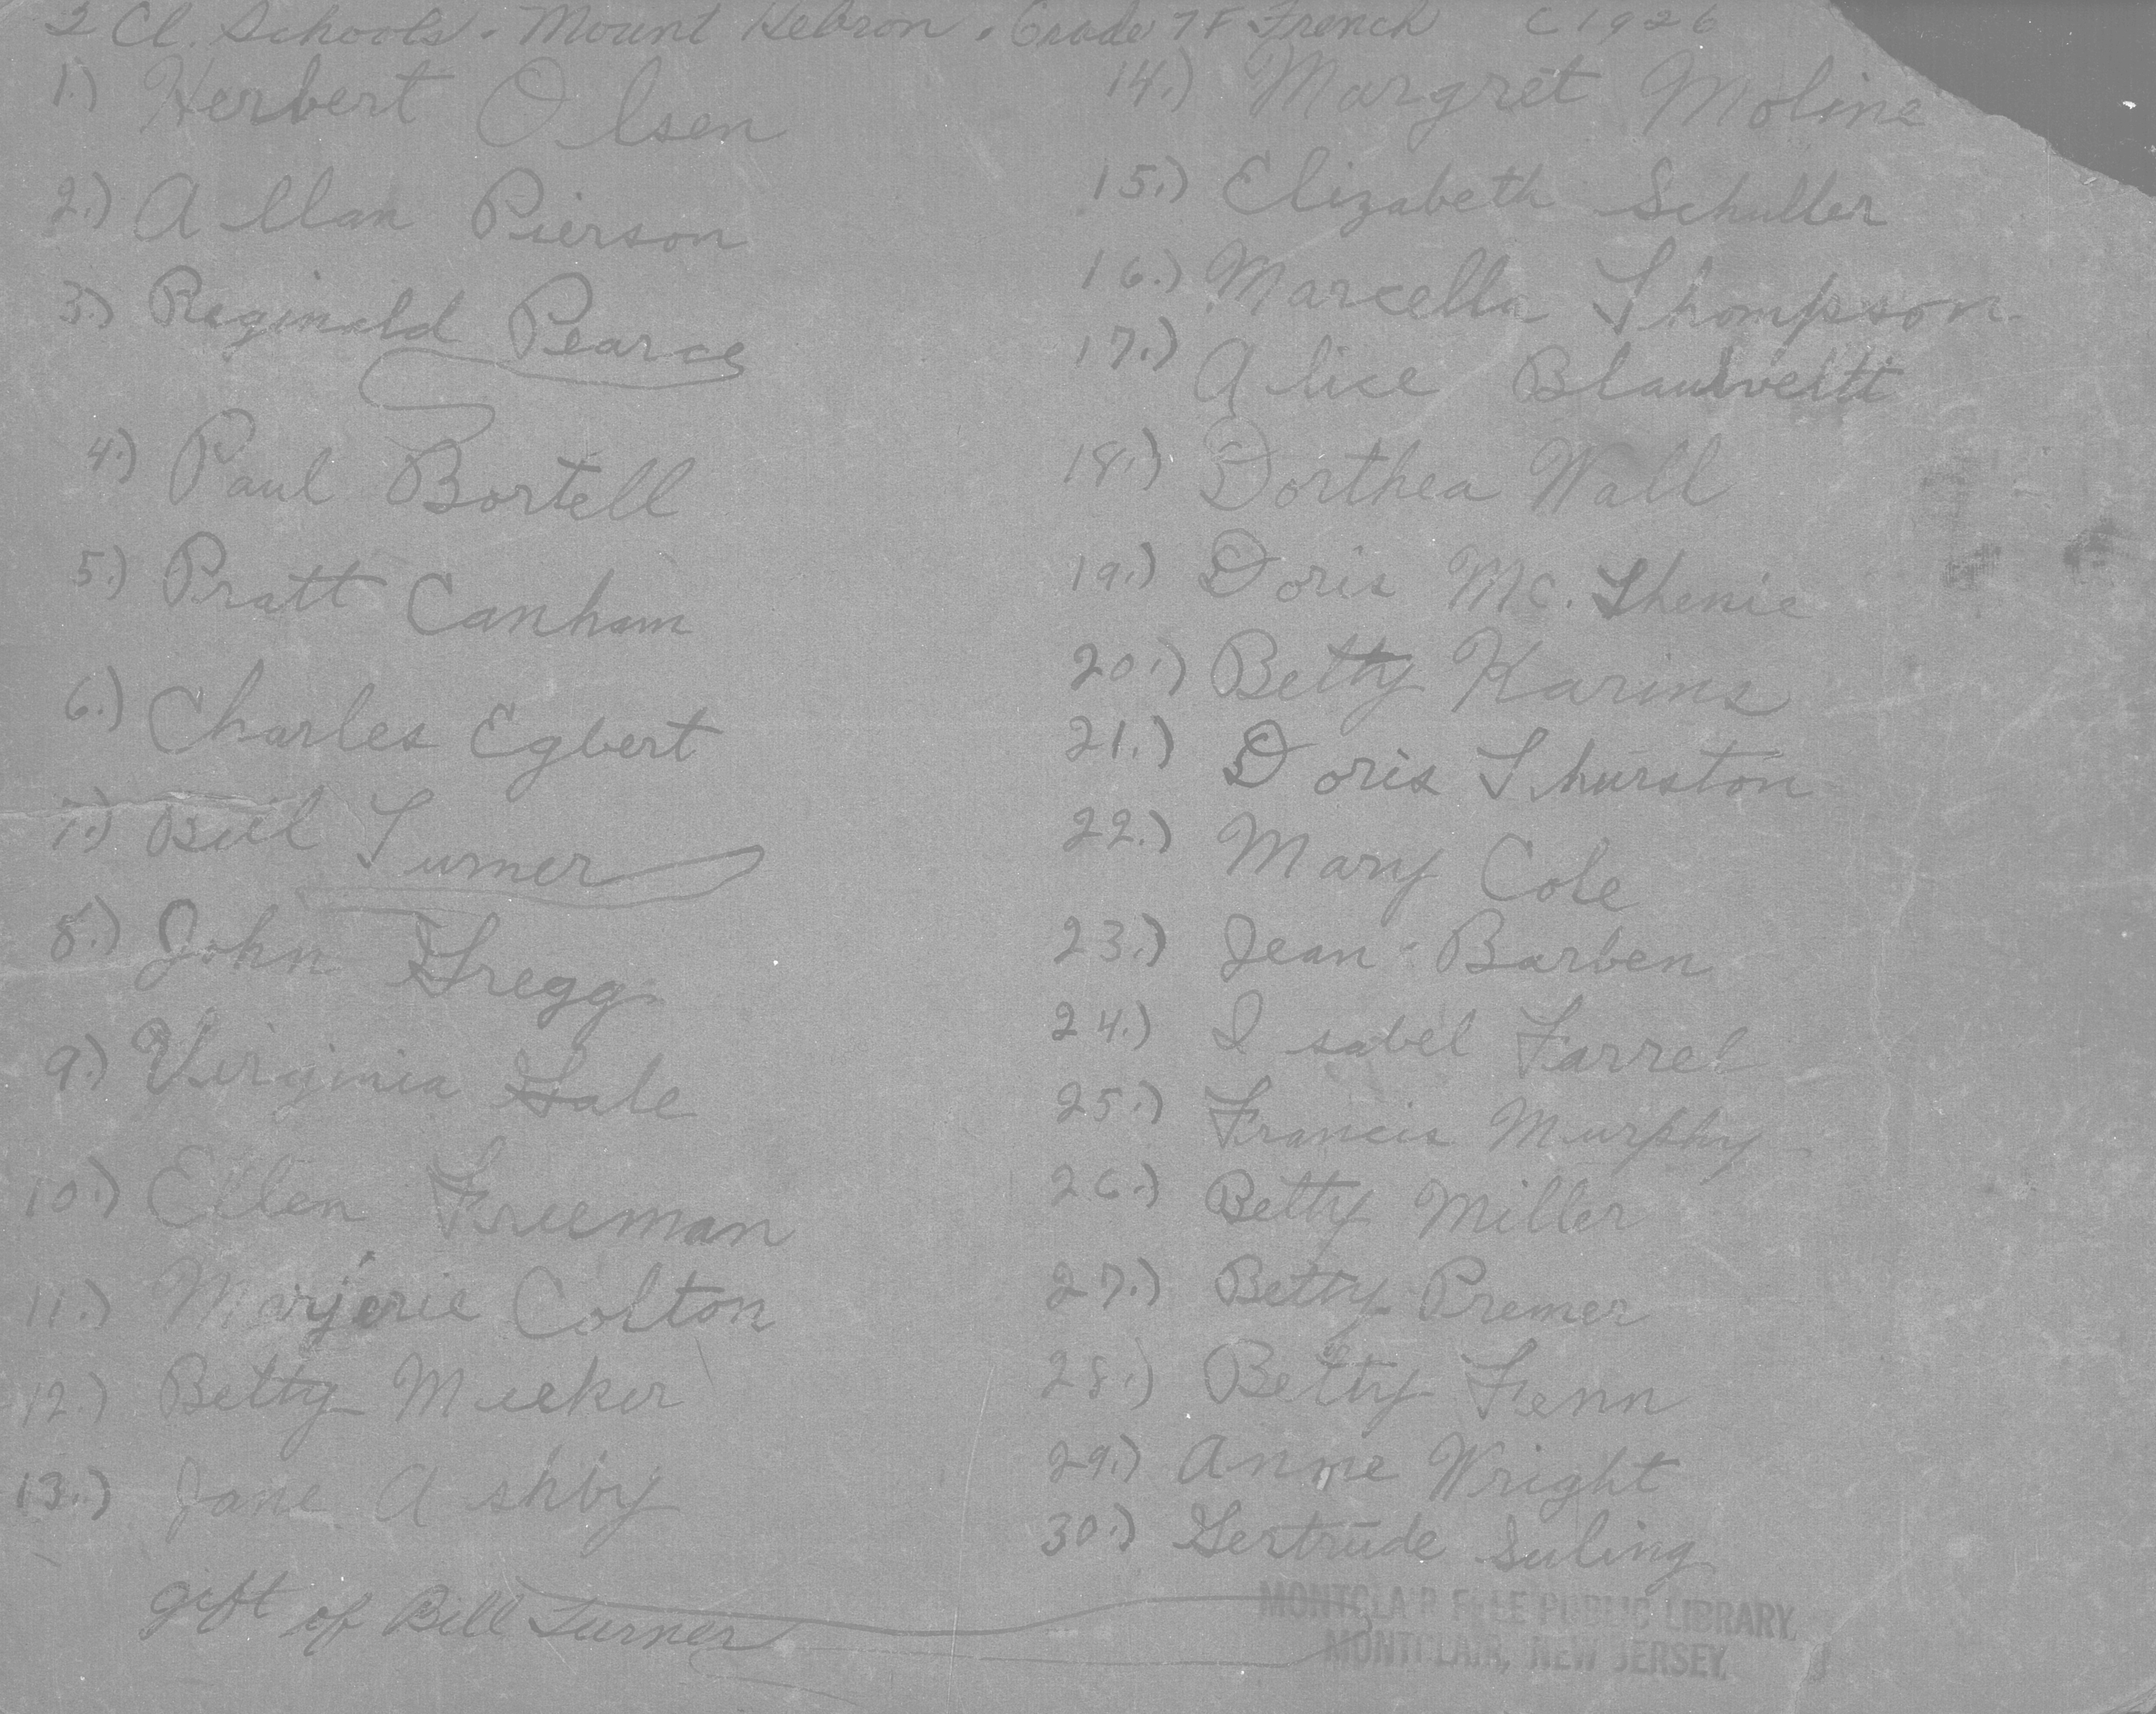 2 Cl. Schools. Mount Hebron. Grade 7F French C 1926
1.) Herbert Olsen
2.) Allan Pierson
3.) Reginald Pearce
4.) Paul Bortell
5.) Pratt Canham
6.) Charles Egbert
7.) Bill Turner
8.) John Gregg
9.) Virginia Gale
10.) Ellen Freeman
11.) Marjorie Colton
12.) Betty Meeker
13.) Jane Ashby
gift of Bill Turner
14.) Margret Moline
15.) Elizabeth Schuller
16.) Marcella Thompson
17.) Alice Blauvelt
18.) Dorthea Wall
19.) Doris Mc.
20.) Betty Karins
21.) Doris Thurston
22.) Mary Cole
23.) Jean Barben
24.) Isabel Farrel
25.) Francis Murphy
26.) Betty Miller
27.) Betty Premer
28.) Betty Fenn
29.) Anne Wright
30.) Gertrude Suling
MONTCLAIR FREE PUBLIC LIBRARY,
MONTCLAIR, NEW JERSEY.